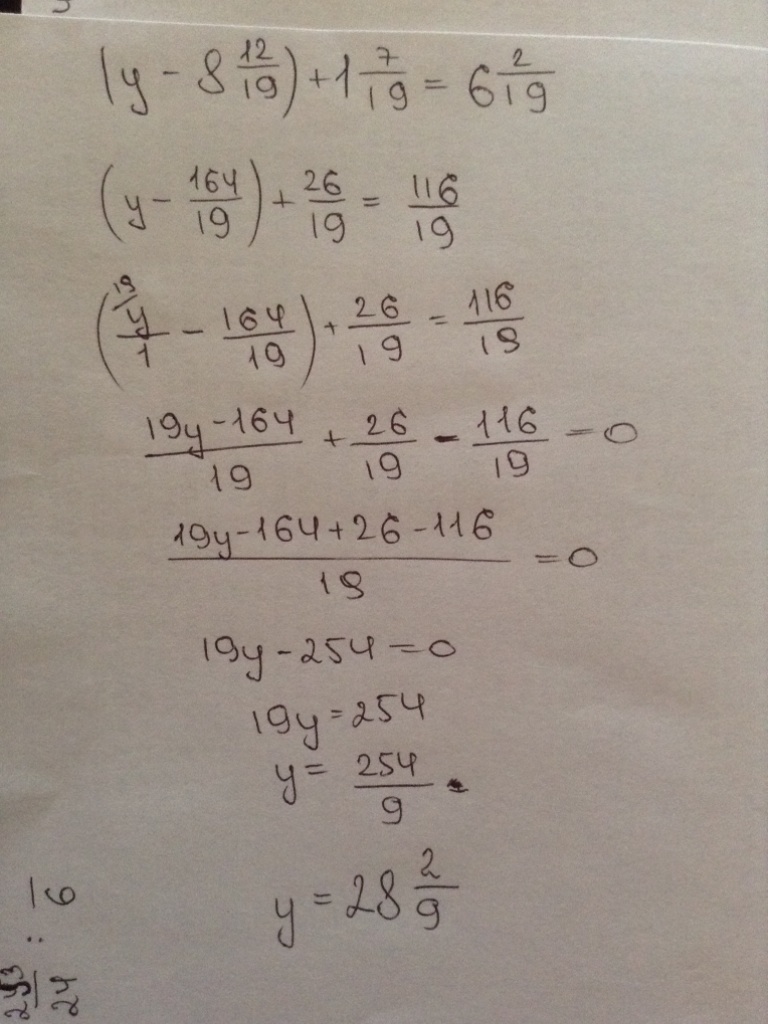 (y - 8 12/19) + 1 7/19 = 6 2/19
(y - 164/19) + 26/19 = 116/19
(19/ y/1 - 164/19) + 26/19 = 116/19
19y - 164/19 + 26/19 - 116/19 = 0
19y - 164 + 26 - 116/19 = 0
19y - 254 = 0
19y = 254
y = 254/9
y = 28 2/9